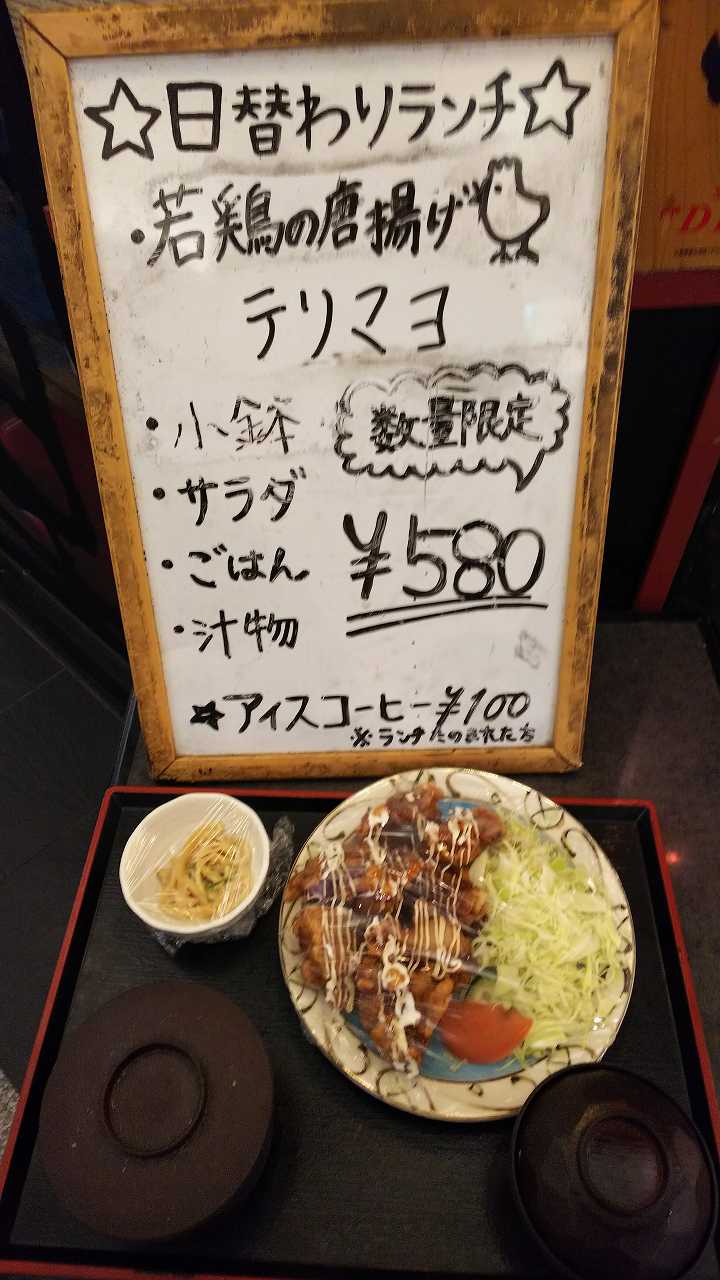 ☆日替わりランチ☆
・若鶏の唐揚げ
テリマヨ
・小鉢
数量限定
・サラダ
・ごはん
¥580
・汁物
★アイスコーヒー¥100
※ランチたのまれた方